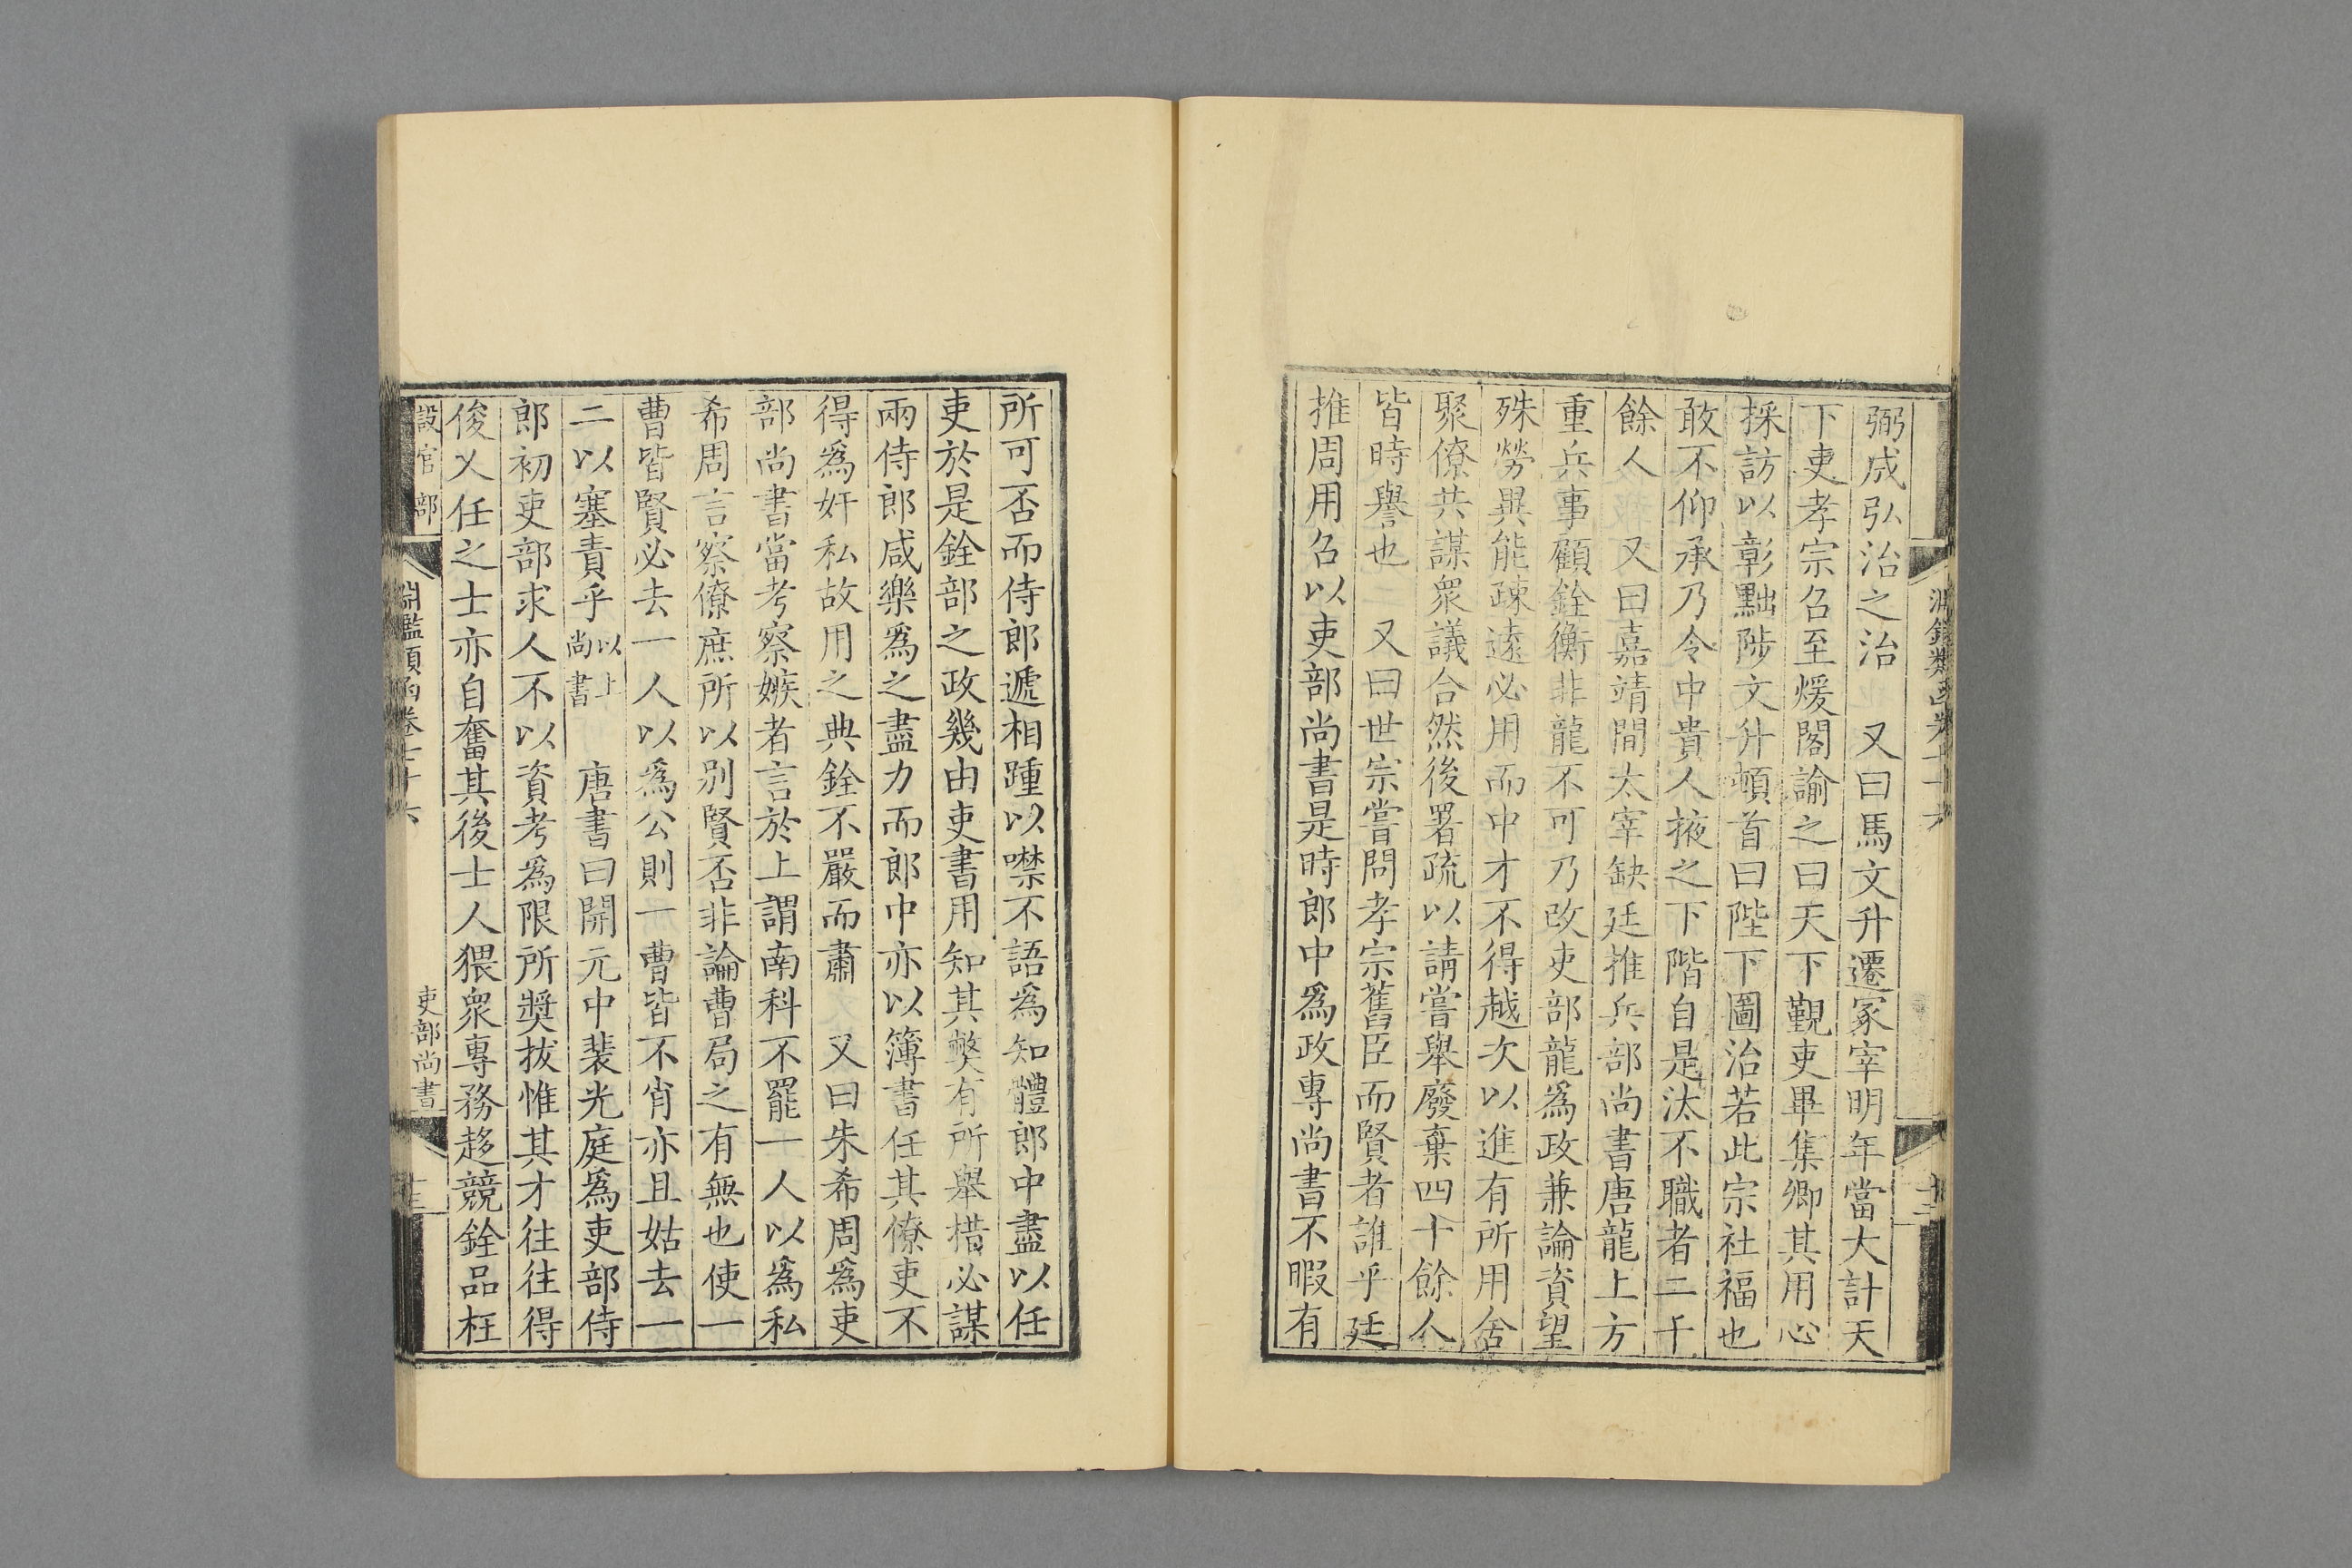 弼成弘治之治　又曰馬文升遷冢宰明年當大計天
下吏孝宗召至煖閣諭之曰天下覲吏畢集卿其用心
採訪以彰黜陟文升頓首曰陛下圖治若此宗社福也
敢不仰承乃令中貴人掖之下階自是汰不職者二千
餘人　又曰嘉靖間太宰缺廷推兵部尚書唐龍上方
重兵事顧銓衡非龍不可乃改吏部龍爲政兼論資望
殊勞異能疎遠必用而中才不得越次以進有所用舍
聚僚共謀衆議合然後署疏以請嘗舉廢棄四十餘人
皆時譽也　又曰世宗嘗問孝宗舊臣而賢者誰乎廷
推周用召以吏部尚書是時郎中爲政專尚書不暇有
所可否而侍郎遞相踵以噤不語爲知體郎中盡以任
吏於是銓部之政幾由吏書用知其獘有所舉措必謀
兩侍郎咸樂爲之盡力而郎中亦以簿書任其僚吏不
得爲奸私故用之典銓不嚴而肅　又曰朱希周爲吏
部尚書當考察嫉者言於上謂南科不罷一人以爲私
希周言察僚庶所以別賢否非論曹局之有無也使一
曹皆賢必去一人以爲公則一曹皆不肖亦且姑去一
二以塞責乎以上尚書　唐書曰開元中裴光庭爲吏部侍
郎初吏部求人不以資考爲限所奬拔惟其才往往得
俊乂任之士亦自奮其後士人猥衆專務趍競銓品枉
設官部
淵鑑類函卷七十六
吏部尚書
十三